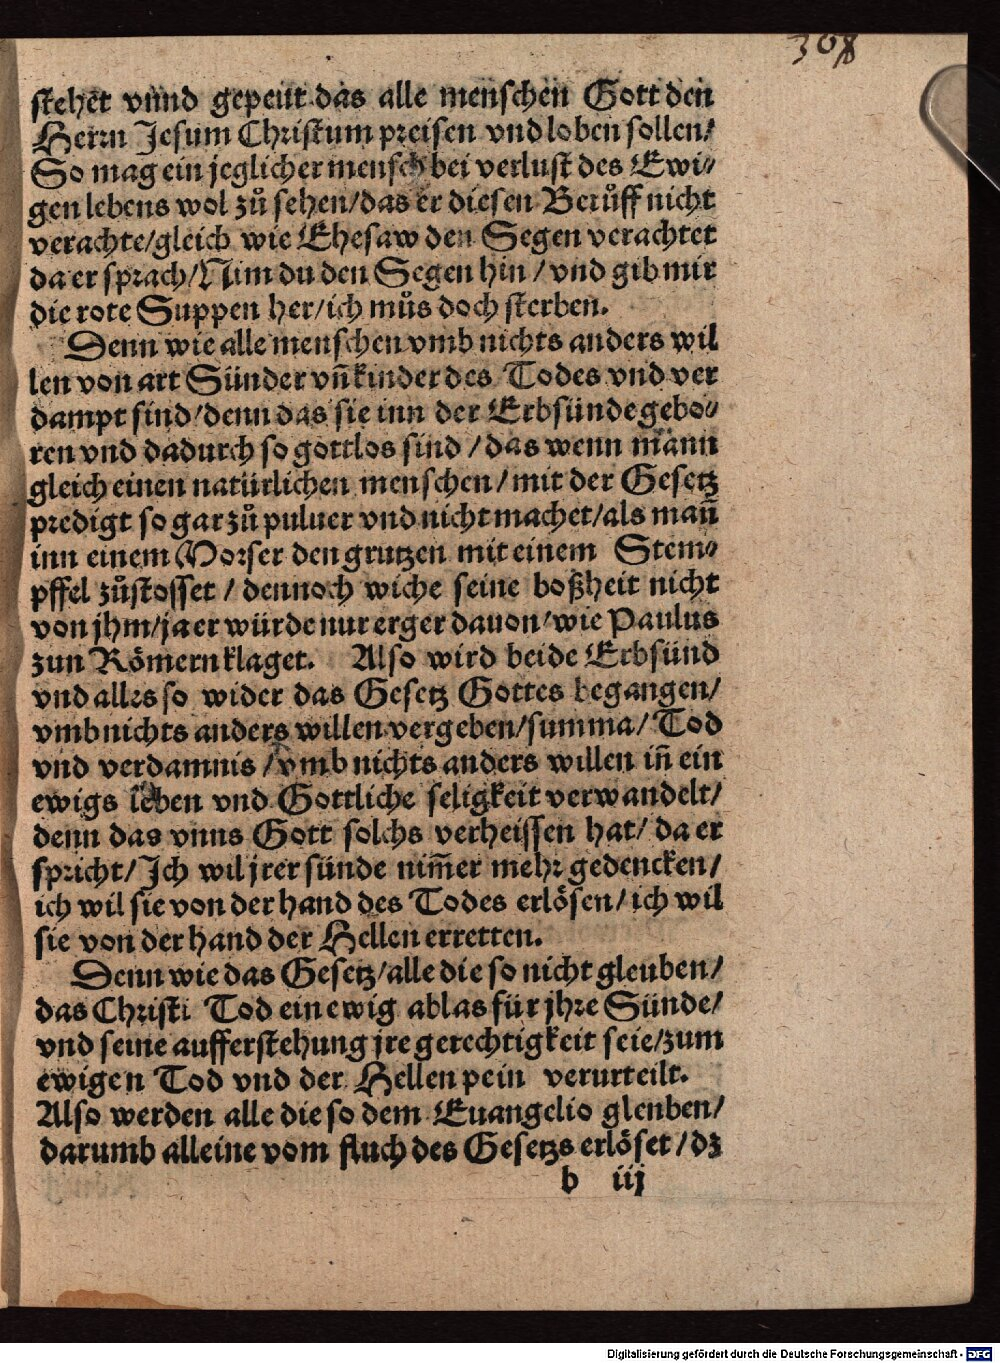 308
stehet vnnd gepeut das alle menschen Gott den
Herrn Jesum Christum preisen vnd loben sollen/
So mag ein jeglicher mensch bei verlust des Ewi⸗
gen lebens wol zů sehen/das er diesen Berůff nicht
verachte/gleich wie Ehesaw den Segen verachtet
da er sprach/Nim du den Segen hin/vnd gib mir
die rote Suppen her/ich můs doch sterben.
Denn wie alle menschen vmb nichts anders wil
len von art Sünder vñ kinder des Todes vnd ver
dampt sind/denn das sie inn der Erbsünde gebo⸗
ren vnd dadurch so gottlos sind/das wenn mann
gleich einen natürlichen menschen/mit der Gesetz
predigt so gar zů puluer vnd nicht machet/als mañ
inn einem Morser den grutzen mit einem Stem⸗
pffel zůstosset/dennoch wiche seine boßheit nicht
von jhm/ja er würde nur erger dauon/wie Paulus
zun Römern klaget. Also wird beide Erbsünd
vnd alles so wider das Gesetz Gottes begangen/
vmb nichts anders willen vergeben/summa/Tod
vnd verdamnis/vmb nichts anders willen iñ ein
ewigs leben vnd Gottliche seligkeit verwandelt/
denn das vnns Gott solchs verheissen hat/da er
spricht/Ich wil jrer sünde nim̃er mehr gedencken/
ich wil sie von der hand des Todes erlösen/ich wil
sie von der hand der Hellen erretten.
Denn wie das Gesetz/alle die so nicht gleuben/
das Christi Tod ein ewig ablas für jhre Sünde/
vnd seine aufferstehung jre gerechtigkeit seie/zum
ewigen Tod vnd der Hellen pein verurteilt.
Also werden alle die so dem Euangelio gleuben/
darumb alleine vom fluch des Gesetzs erlöset/dz
b iij
Digitalisierung gefördert durch die Deutsche Forschungsgemeinschaft - DFG